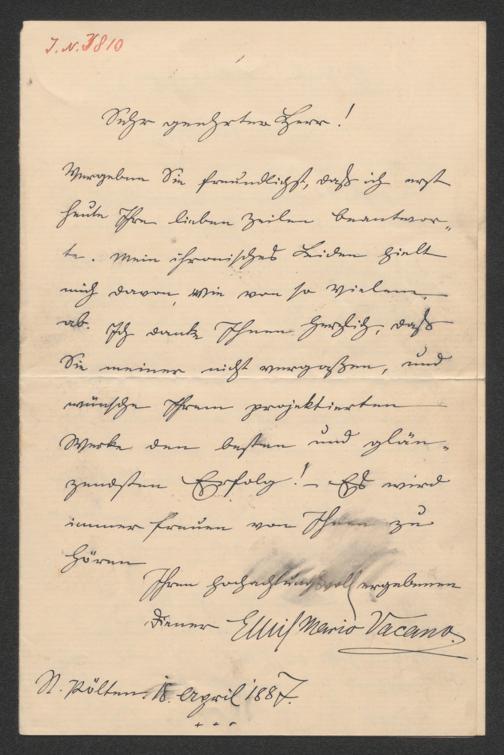 J. N. 7810
Sehr geehrter Herr!
Vergeben Sie freundlichst, daß ich erst
heute Ihre lieben Zeilen beantwor-
te. Mein chronisches Leiden hielt
mich davon, wie von so Vielem,
ab. Ich danke Ihnen herzlich, daß
Sie meiner nicht vergaßen, und
wünsche Ihrem projektierten
Werke den besten und glän-
zendsten Erfolg! – Es wird
immer freuen von Ihnen zu
hören
Ihrem hochachtungsvoll ergebenen
Diener Emil Mario Vacano.
St. Pölten. 18. April 1887.